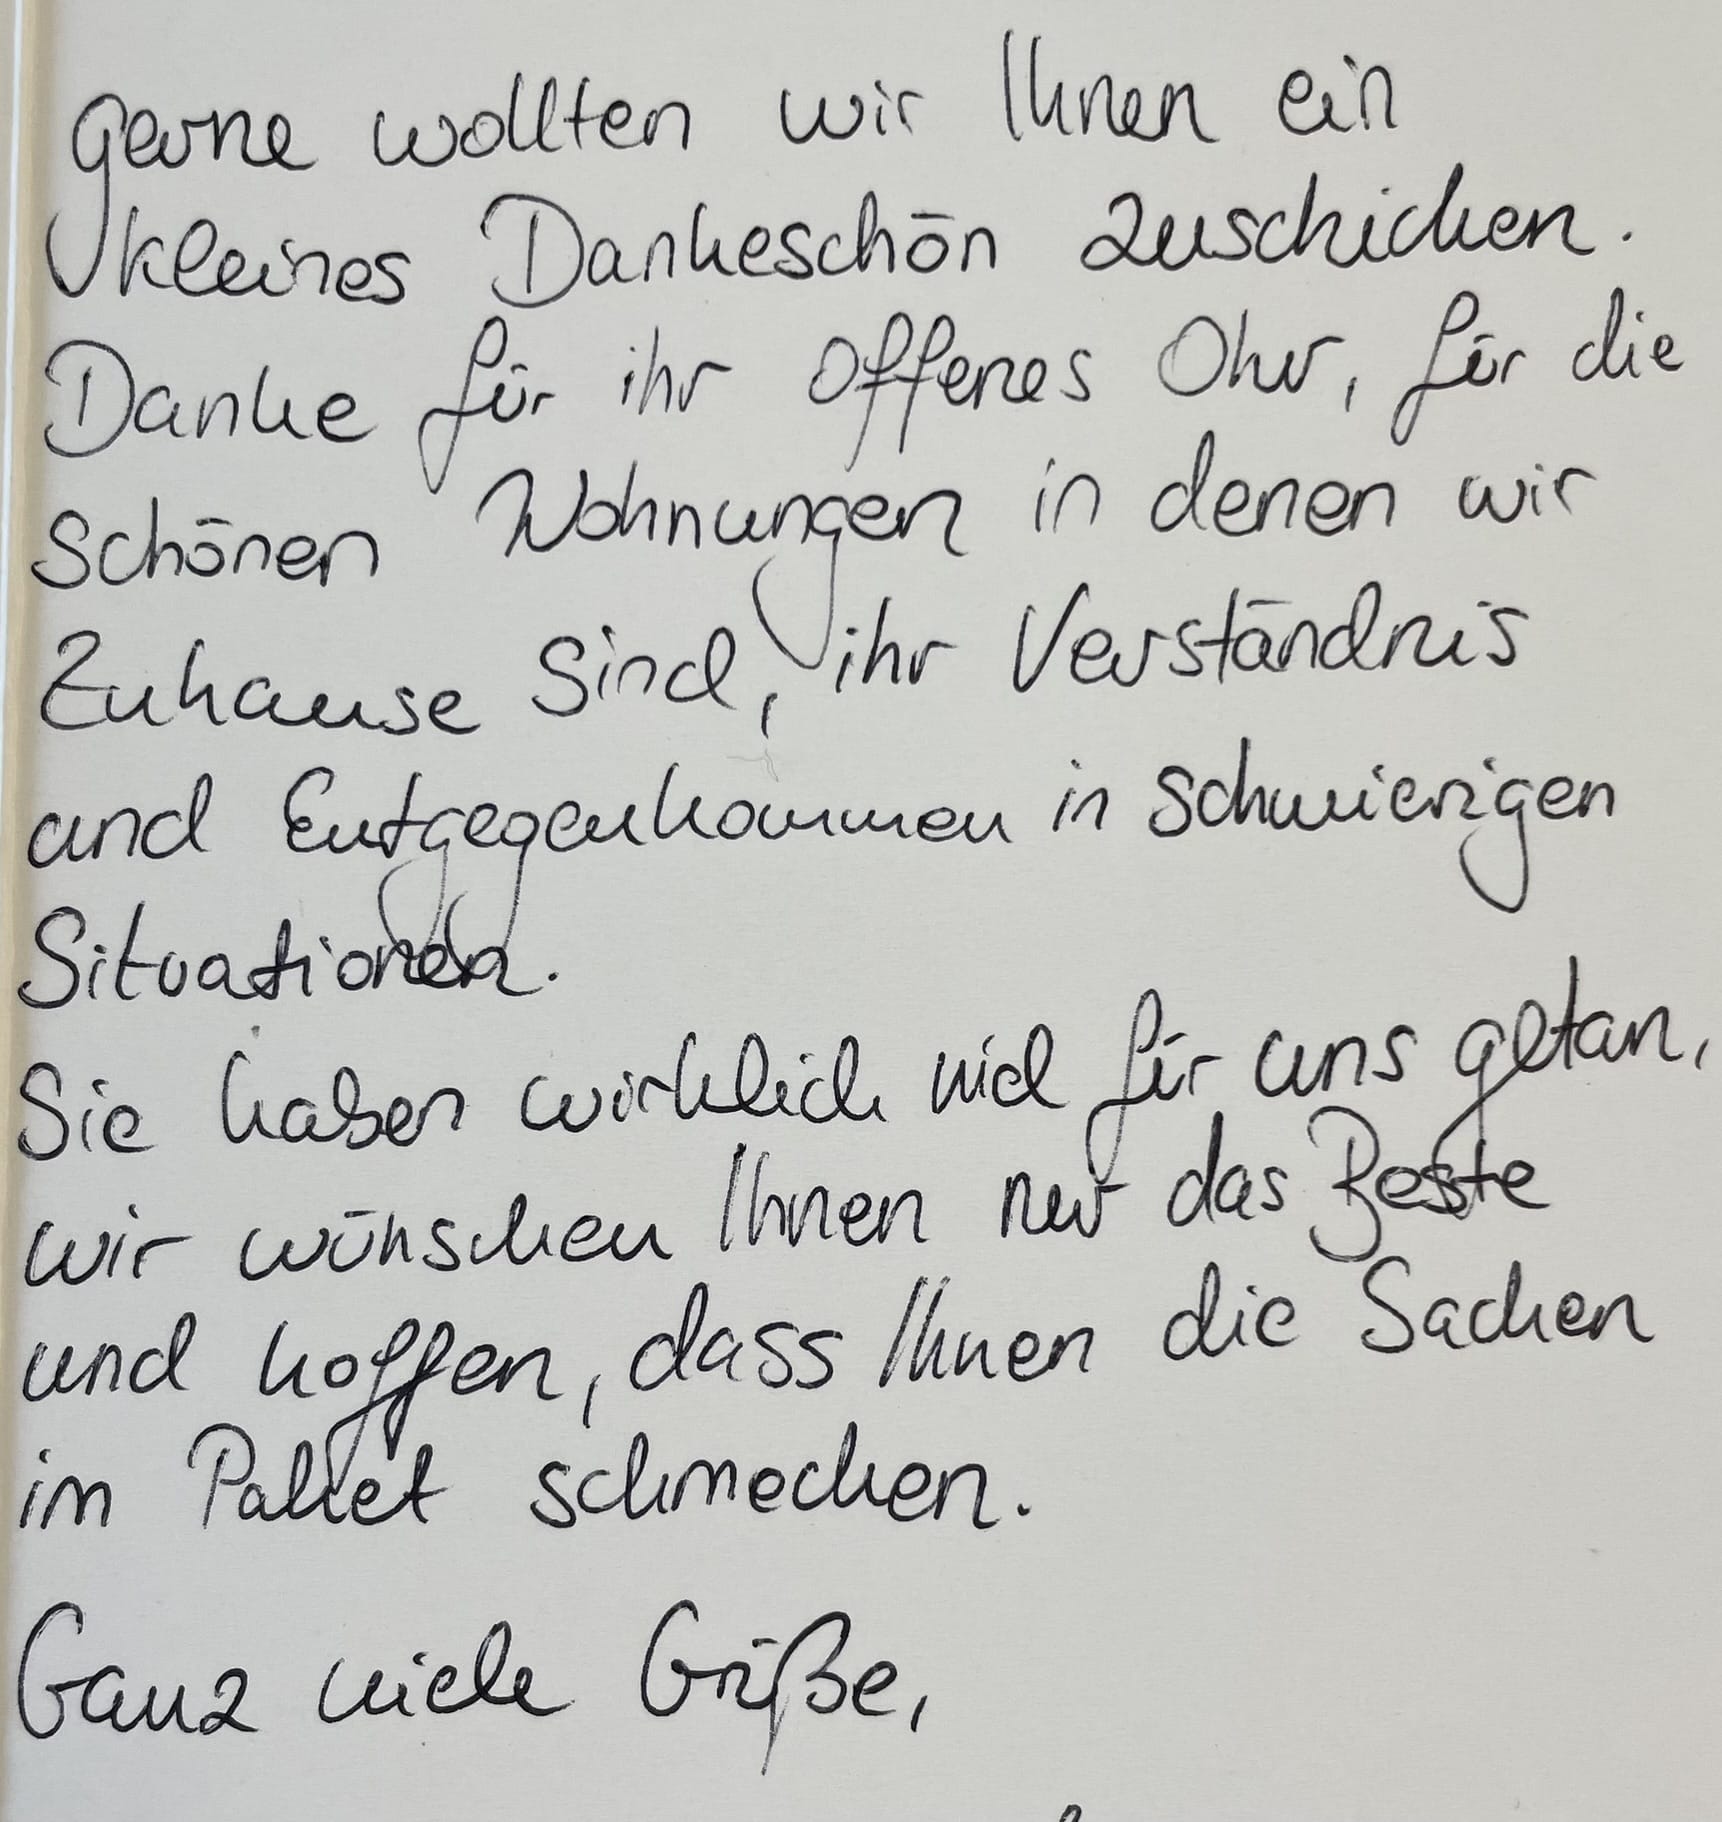 gerne wollten wir Ihnen ein
kleines Dankeschön zuschicken.
Danke für ihr offenes Ohr, für die
schönen Wohnungen in denen wir
Zuhause sind, ihr Verständnis
und Entgegenkommen in schwierigen
Situationen.
Sie haben wirklich viel für uns getan,
wir wünschen Ihnen nur das Beste
und hoffen, dass Ihnen die Sachen
im Paket schmecken.
Ganz viele Grüße,